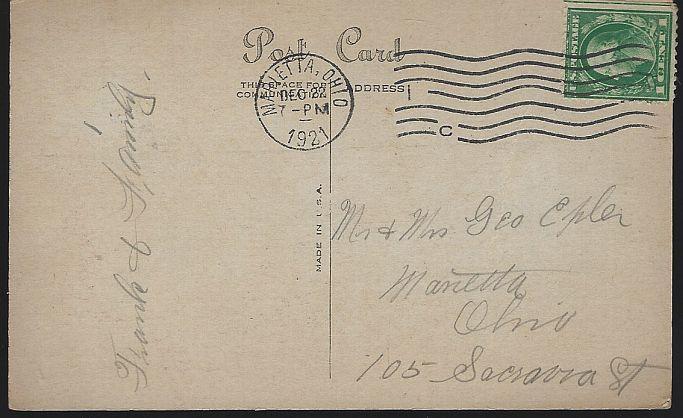 Post Card
THIS SPACE FOR
COMMUNICATION
ADDRESS
MARIETTA, OHIO
DEC 22
7-PM
1921
C
POSTAGE
1
MADE IN U.S.A.
Mr & Mrs Geo Epler
Marietta
Ohio
105 Sacravia St
Frank &